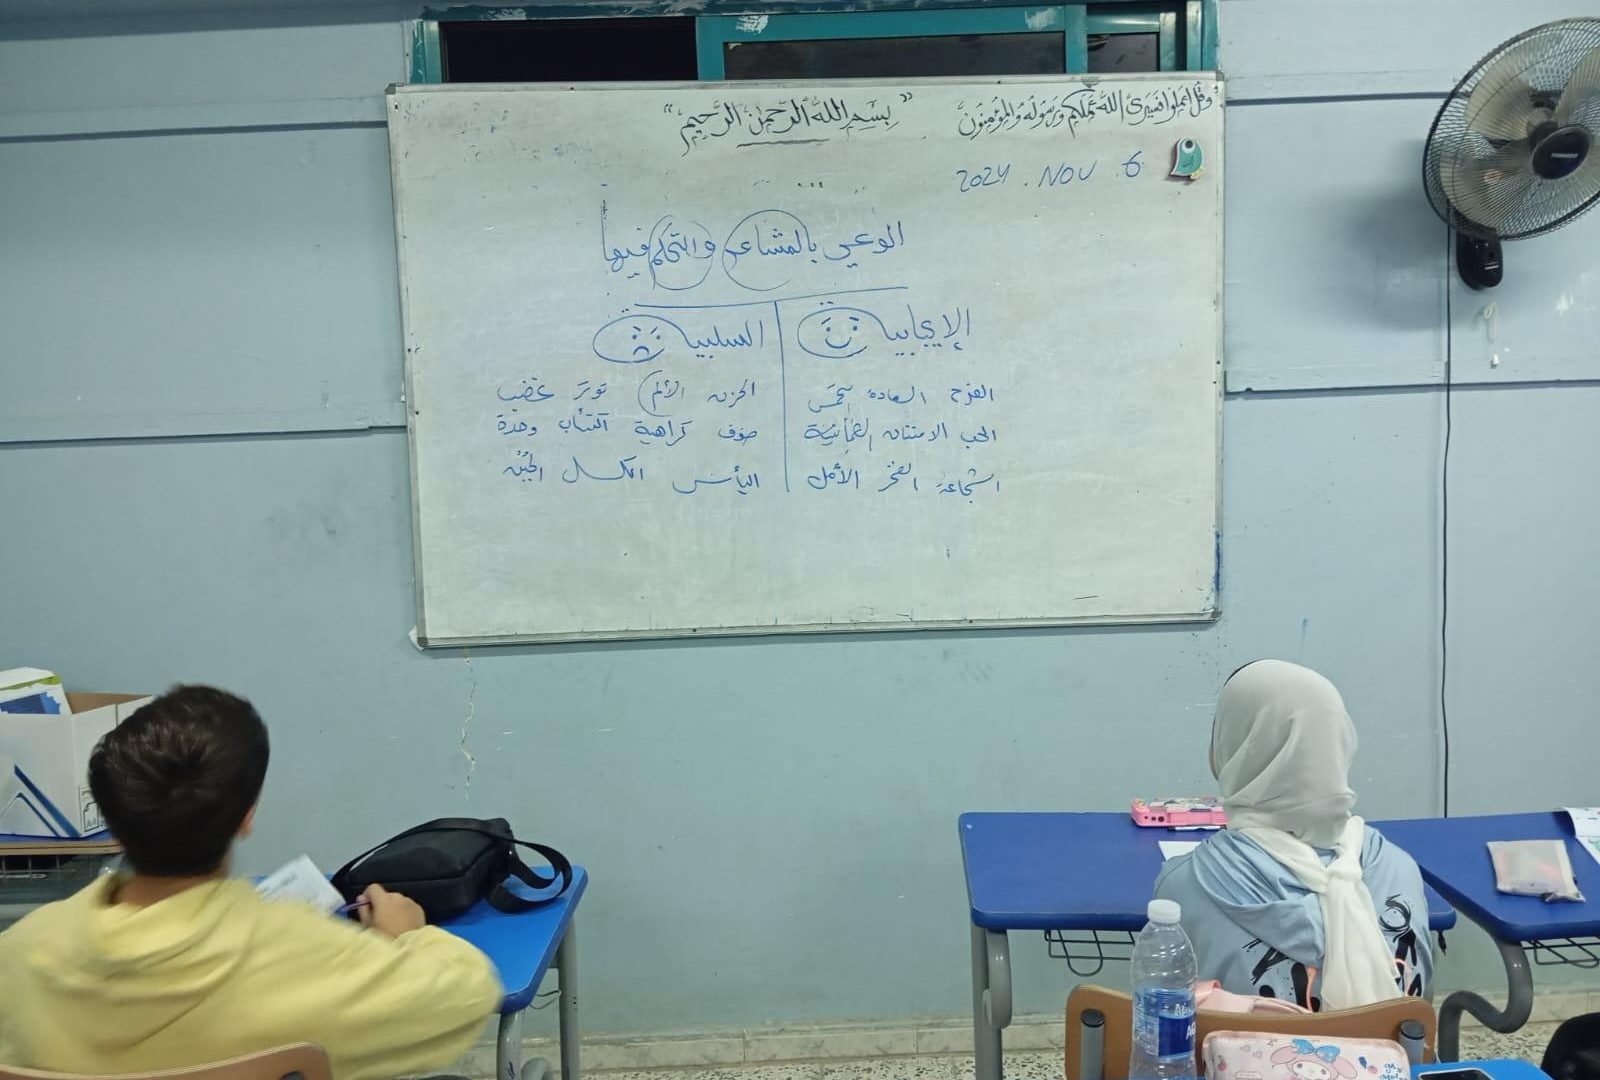 وَقُلِ اعْمَلُوا فَسَيَرَى اللَّهُ عَمَلَكُمْ وَرَسُولُهُ وَالْمُؤْمِنُونَ
"بِسْمِ اللَّهِ الرَّحْمَنِ الرَّحِيم"
2024 . NOV . 6
الوعي بالمشاعر والتحكم فيها
الإيجابية
الفرح السعادة تحمس
الحب الامتنان الطمأنينة
الشجاعة الفخر الأمل
السلبية
الحزن الألم توتر غضب
خوف كراهية اكتئاب وحدة
اليأس الكسل الجُبْن